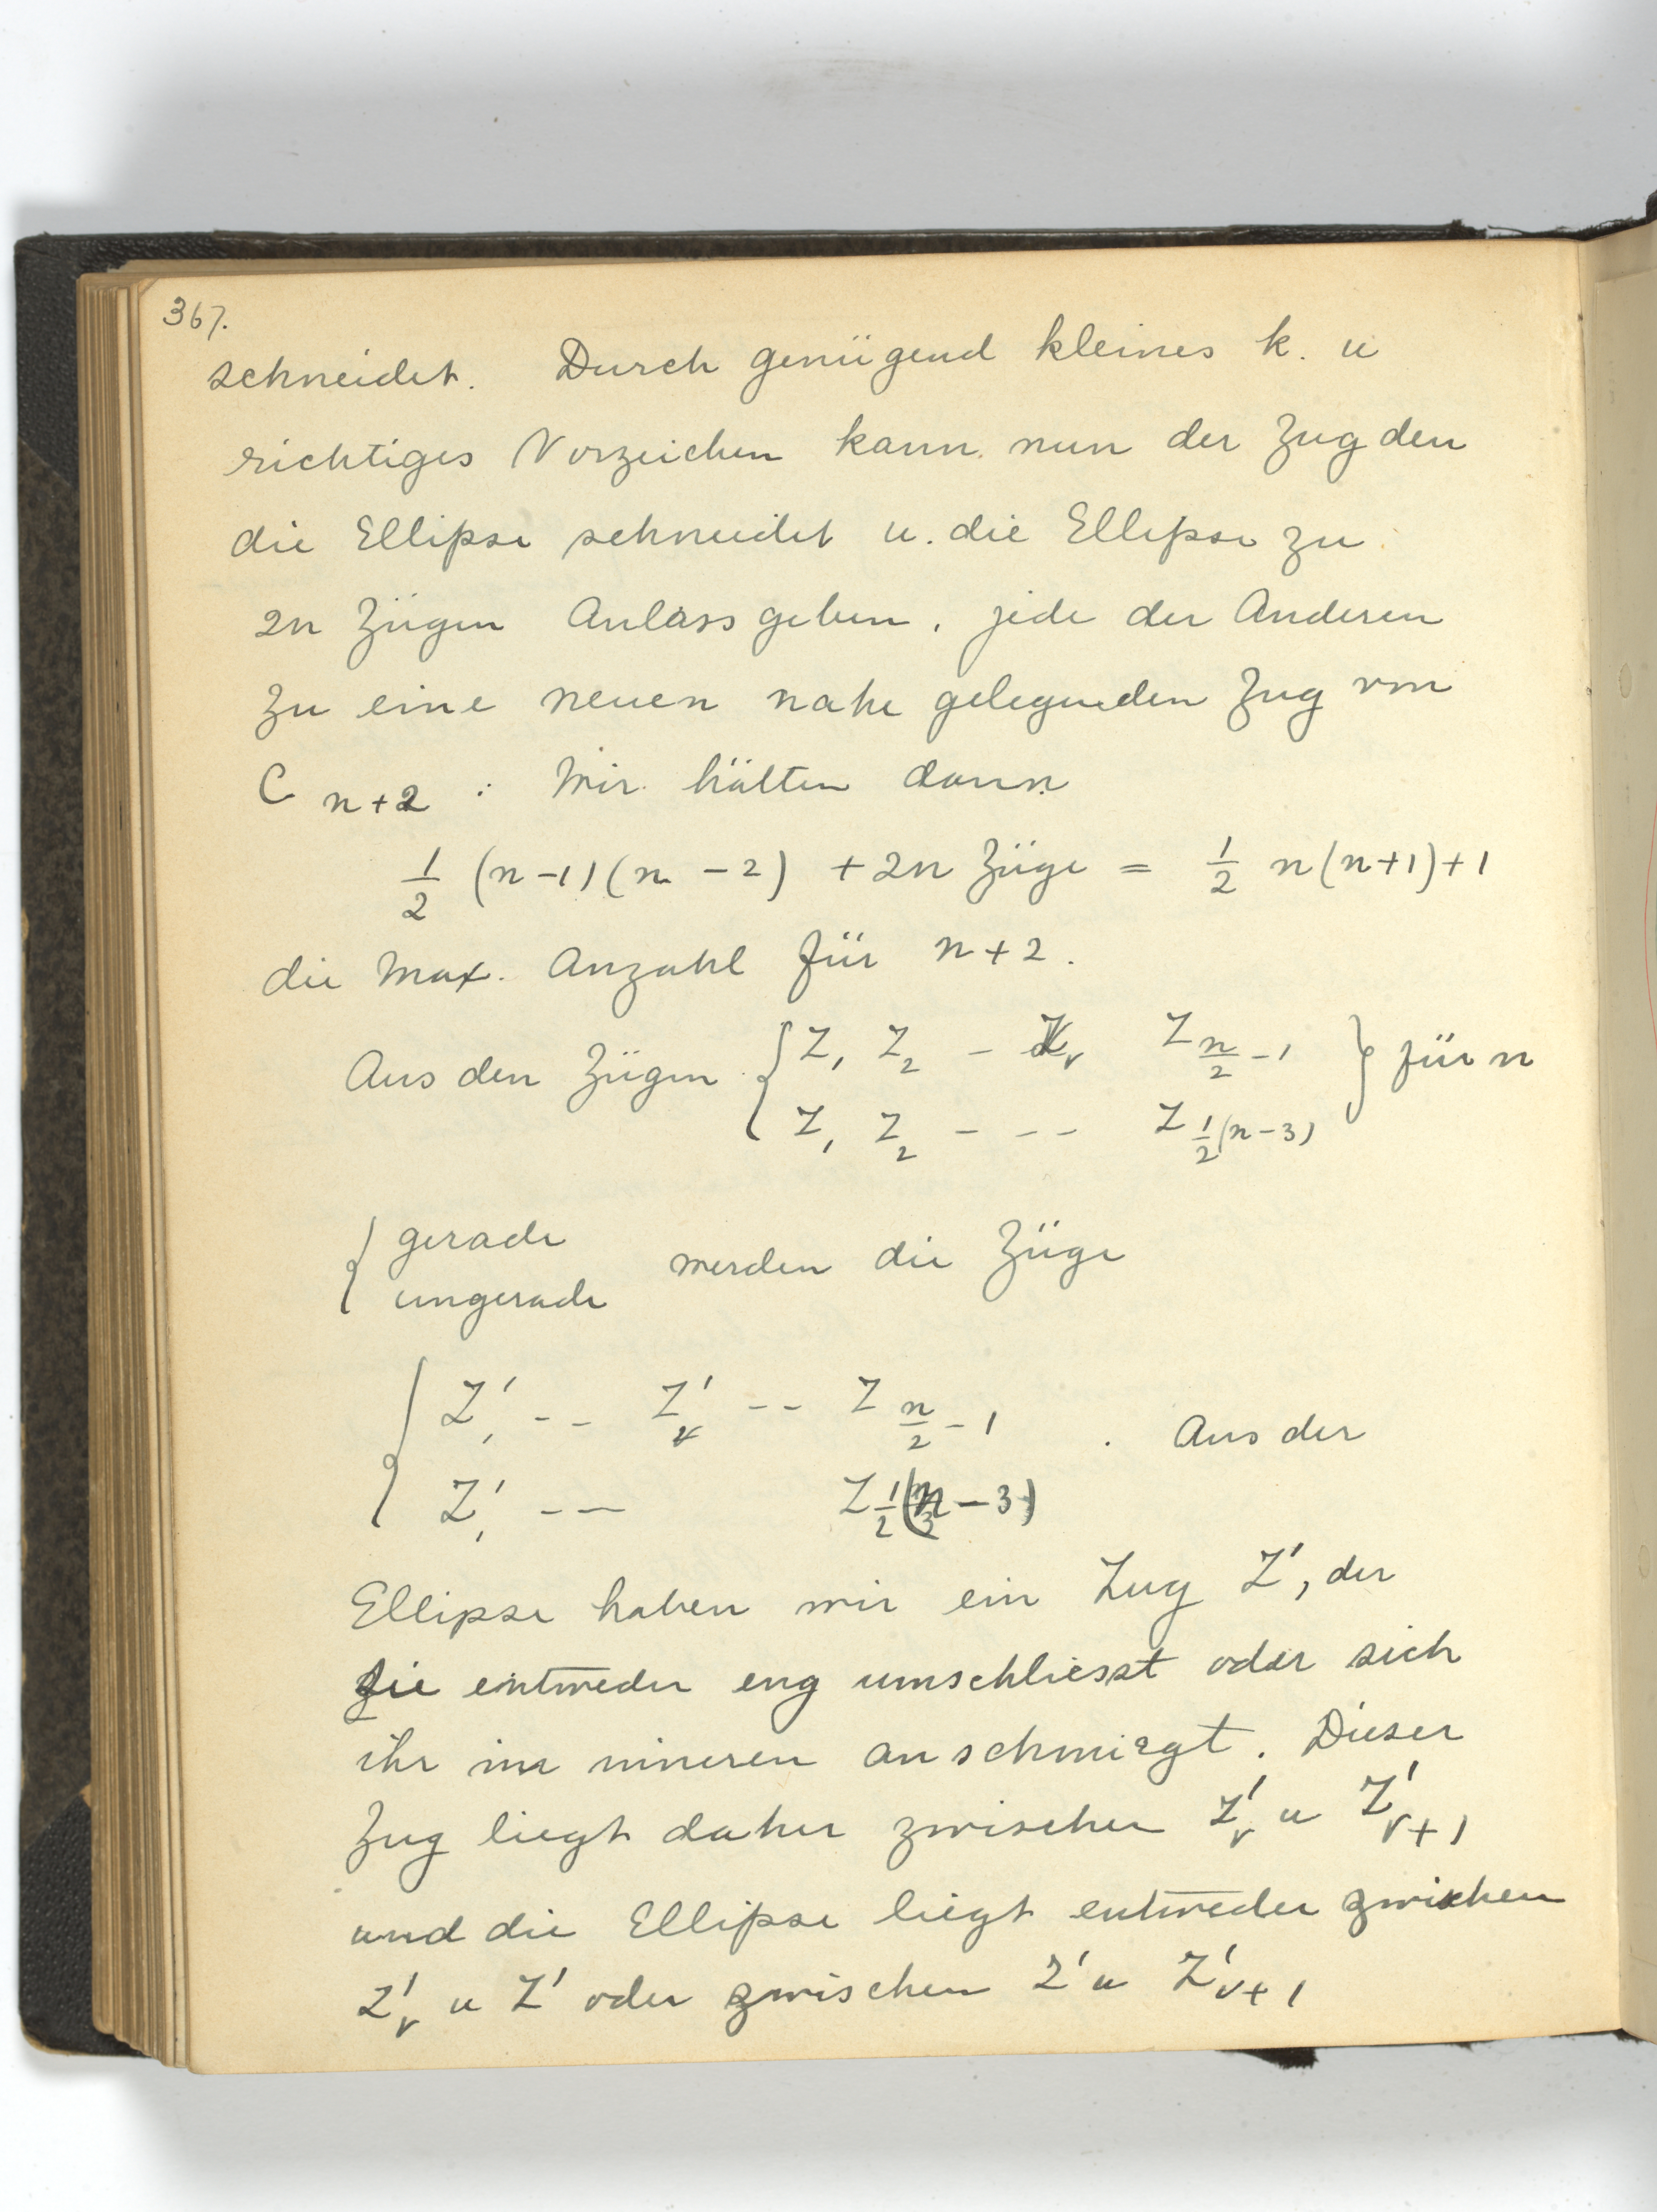 367.
schneidet. Durch genügend kleines k. u
richtiges Vorzeichen kann nun der Zug den
die Ellipse schneidet u. die Ellipse zu
2n Zügen Anlass geben, jede der Anderen
zu eine neuen nahe gelegenden Zug von
C n+2 : Wir hätten dann
1/2 (n-1)(n-2) + 2n Züge = 1/2 n(n+1)+1
die Max. Anzahl für n+2.
Aus den Zügen { Z₁ Z₂ – Zν Z n/2 -1 } für n
Z₁ Z₂ - - - Z 1/2(n-3)
{ gerade
ungerade werden die Züge
{ Z'₁ -- Z'ν -- Z n/2 -1 . Aus der
Z'₁ -- Z 1/2(n-3)
Ellipse haben wir ein Zug Z', der
sie entweder eng umschliesst oder sich
ihr im inneren anschmiegt. Dieser
Zug liegt daher zwischen Z'ν u Z'ν+1
und die Ellipse liegt entweder zwischen
Z'ν u Z' oder zwischen Z' u Z'ν+1